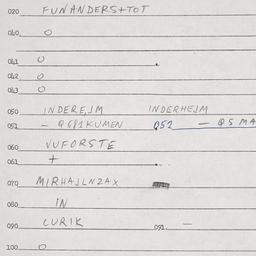 020 FUNANDERS+TOT
040 O
041 O
042 O
043 O
050 INDEREJM INDERHEJM
051 - Q681KUMEN 052 - QSMA
060 VUFORSTE
061 +
070 MIRHAJLNZAX
080 IN
090 LURIK 091. -
100 O